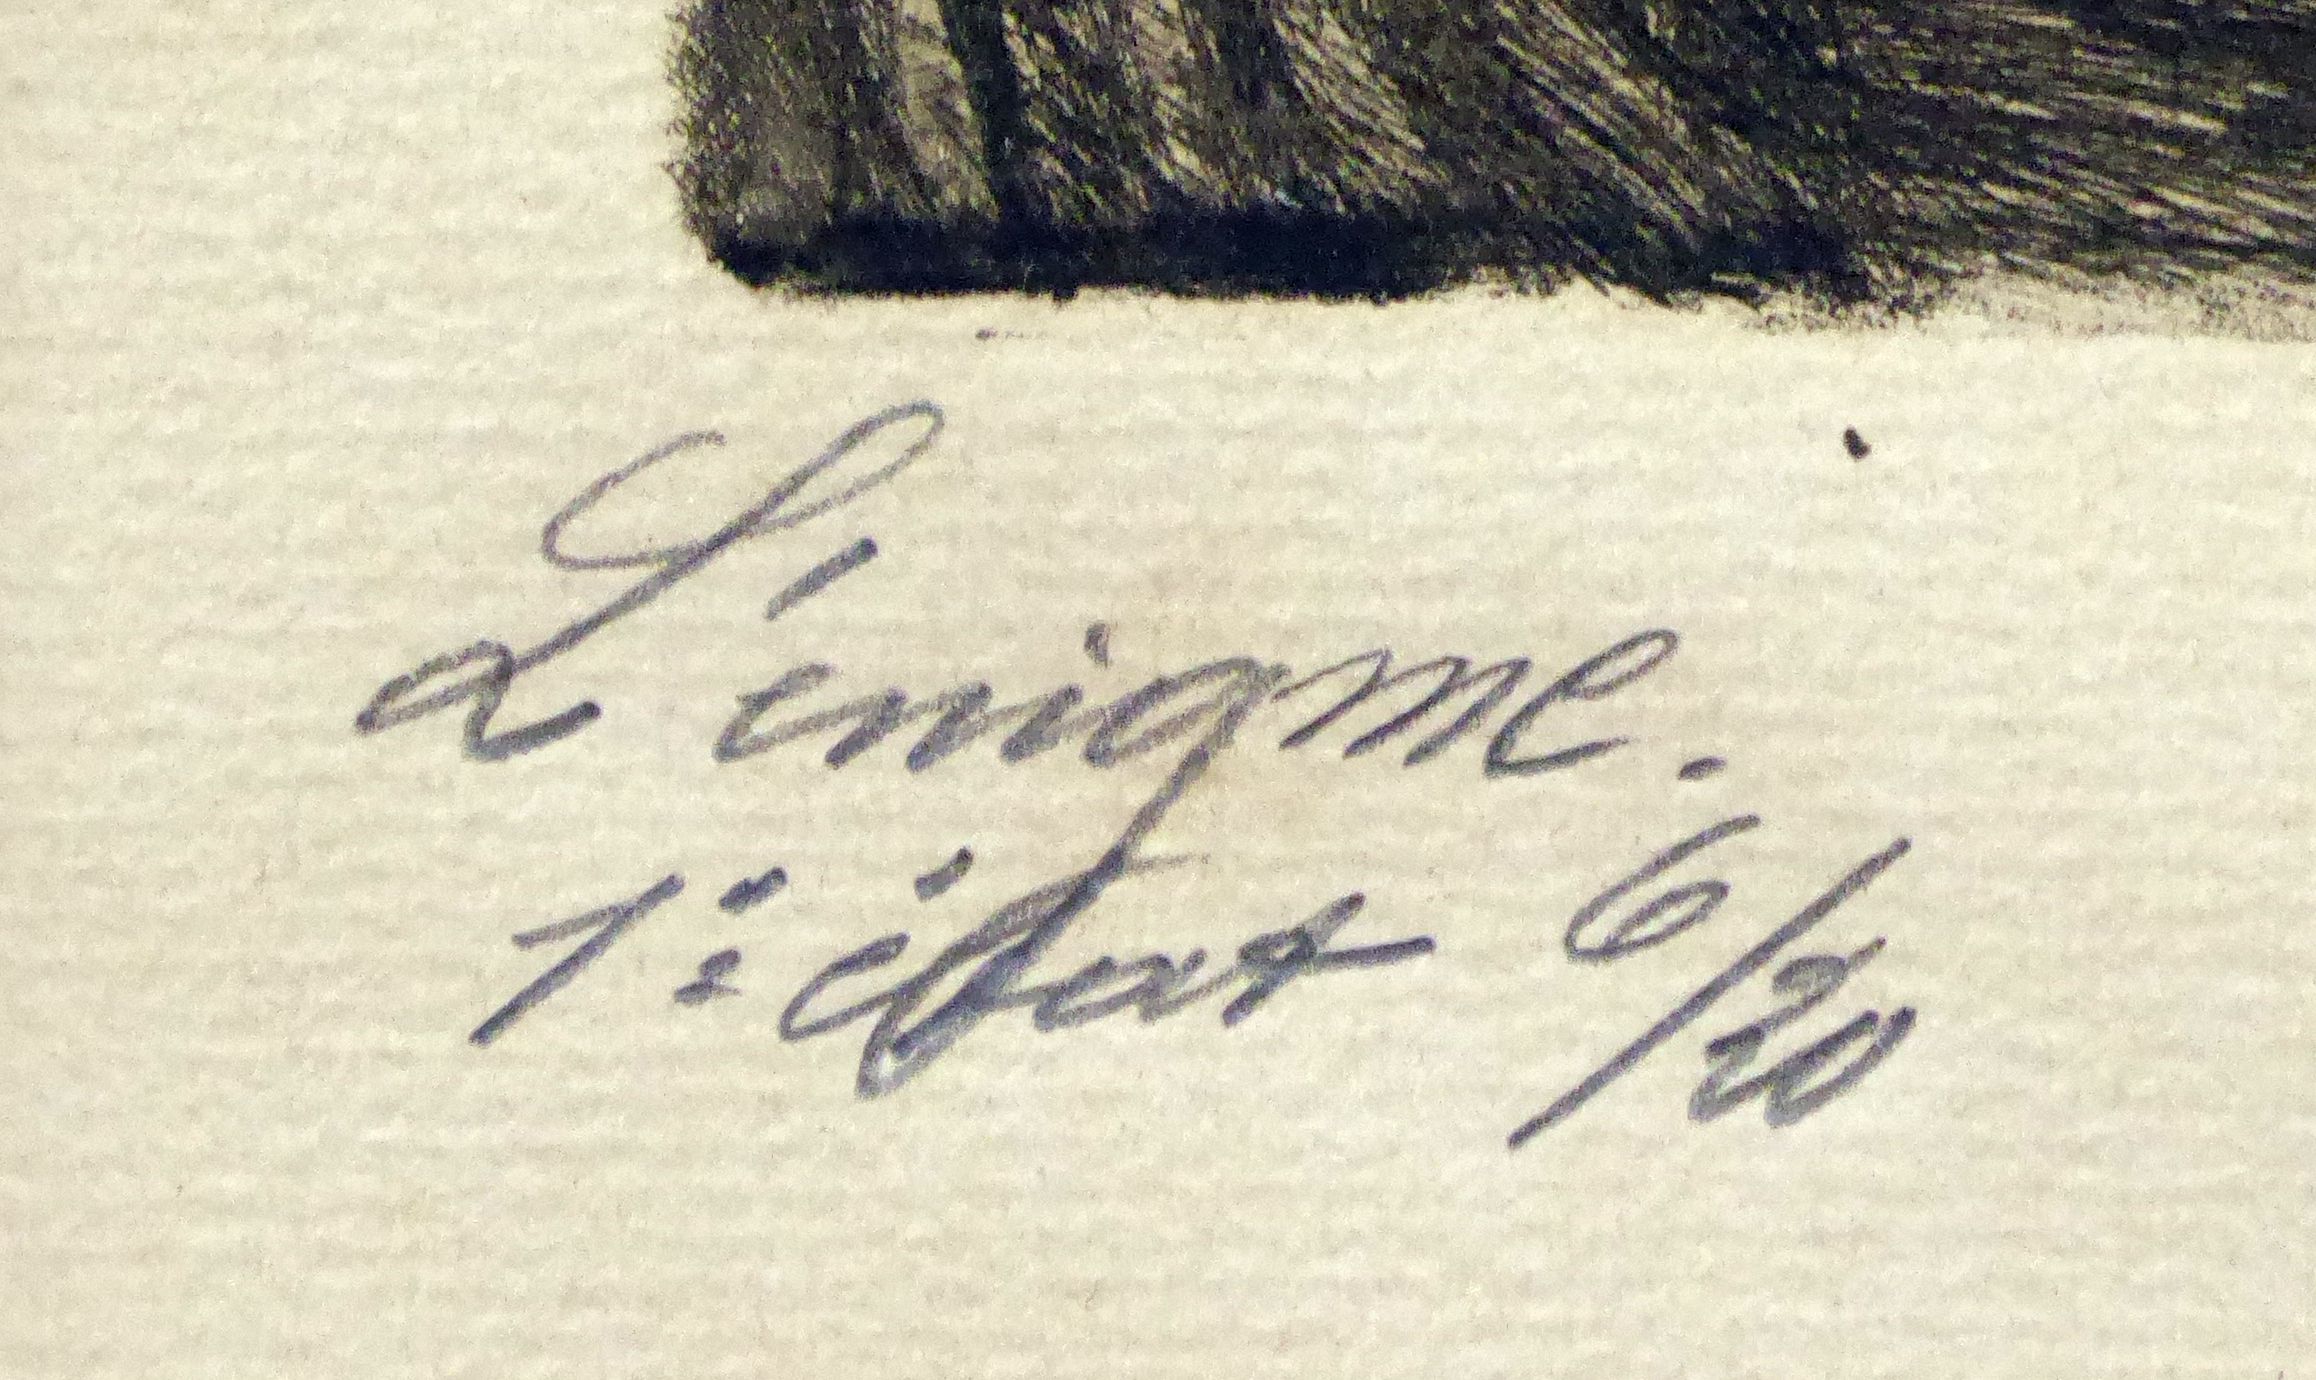 L'énigme.
1e état 6/20